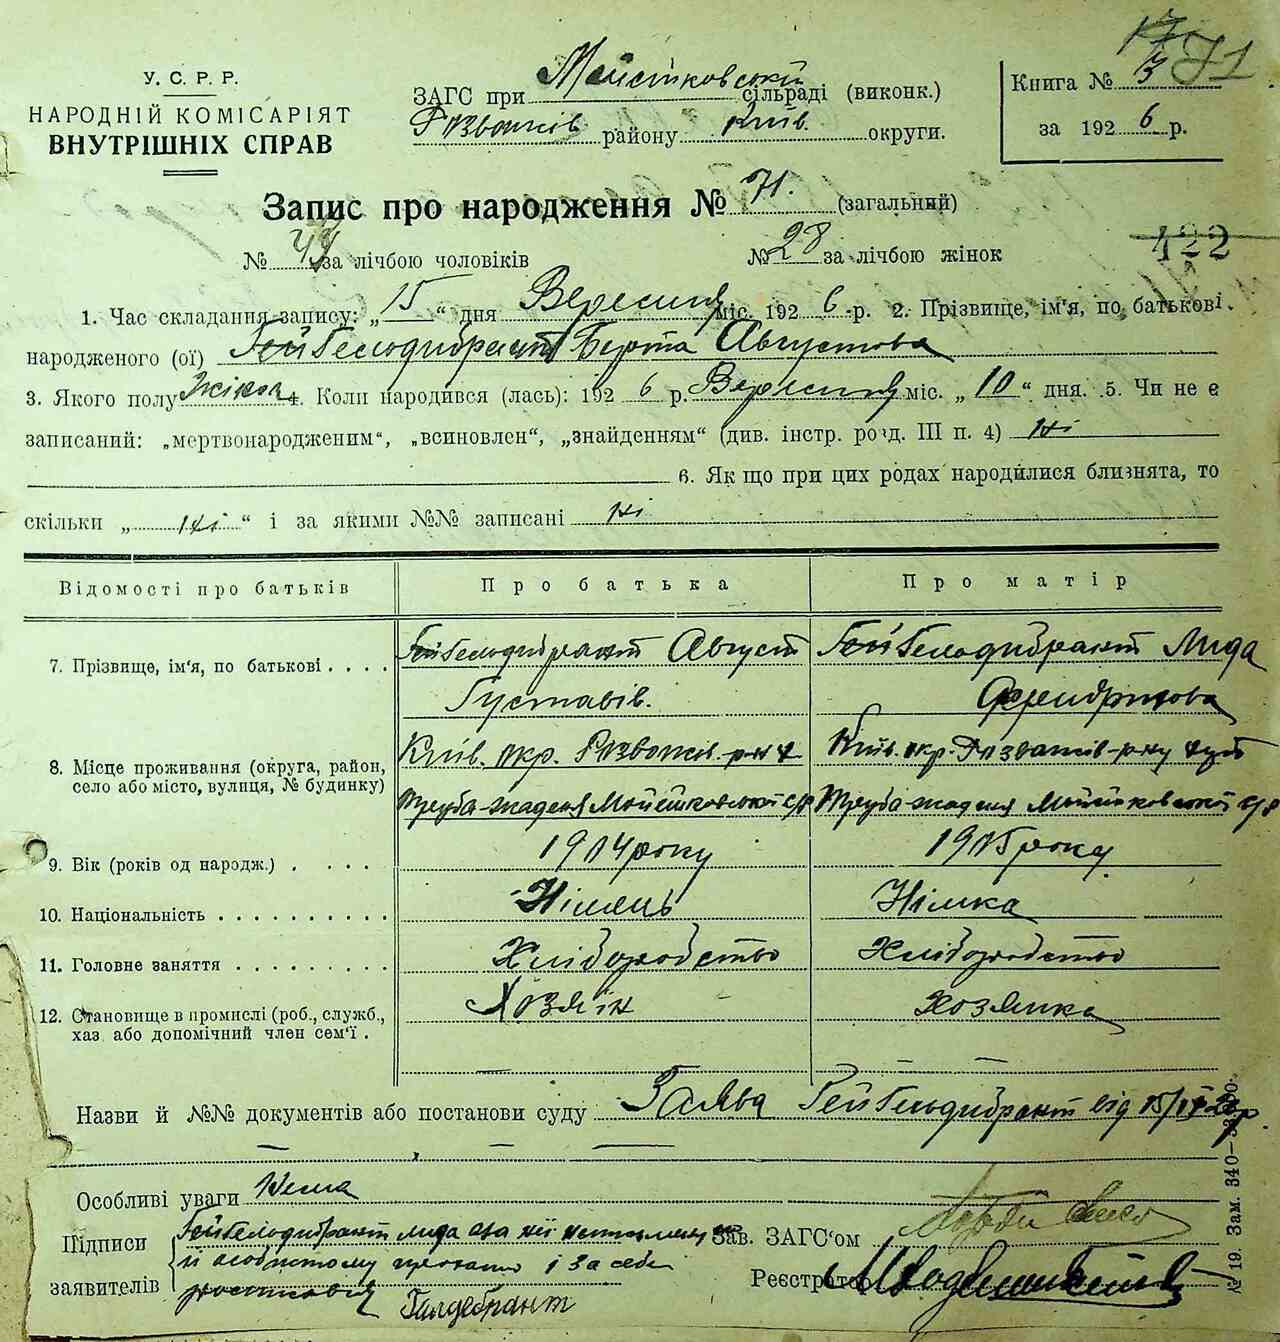 71
У. С. Р. Р.
НАРОДНІЙ КОМІСАРІЯТ
ВНУТРІШНІХ СПРАВ
ЗАГС при сільраді (виконк.)
Розважів. району Київ. округи.
Книга № 3
за 1926 р.
Запис про народження № 71. (загальний)
№ за лічбою чоловіків № 28 за лічбою жінок
422
1. Час складання запису: „15“ дня Вересня міс. 1926 р. 2. Прізвище, ім'я, по батькові
народженого (ої) Гельдибрант Берта Августова
3. Якого полу Жіноч 4. Коли народився (лась): 1926 р. Вересня міс. „10“ дня. 5. Чи не є
записаний: „мертвонародженим“, „всиновлен“, „знайденням“ (див. інстр. розд. III п. 4) ні
6. Як що при цих родах народилися близнята, то
скільки „ні“ і за якими №№ записані ні
Відомості про батьків Про батька Про матір
7. Прізвище, ім'я, по батькові . . . . Гельдибрант Август Гельдибрант Лида
Густавів.
8. Місце проживання (округа, район, Київ. окр. Розважів. р-ну Київ. окр. Розважів-р-ну
село або місто, вулиця, № будинку)
9. Вік (років од народж.) . . . . 1904 року 1905 року
10. Національність . . . . . . . . . . Німець Німка
11. Головне заняття . . . . . . . . . Хліборобство Хліборобство
12. Становище в промислі (роб., служб., Хозяін Хозяйка
хаз або допомічний член сем'ї .
Назви й №№ документів або постанови суду Заява Гельдибрант від 15/IX 26 р
Особливі уваги Нема
Підписи Гельдибрант Лида а за неї неписьмену Зав. ЗАГС'ом
й особистому проханню і за себе
заявителів Реєстратор
Галдебрант
№ 19. Зам. 340—